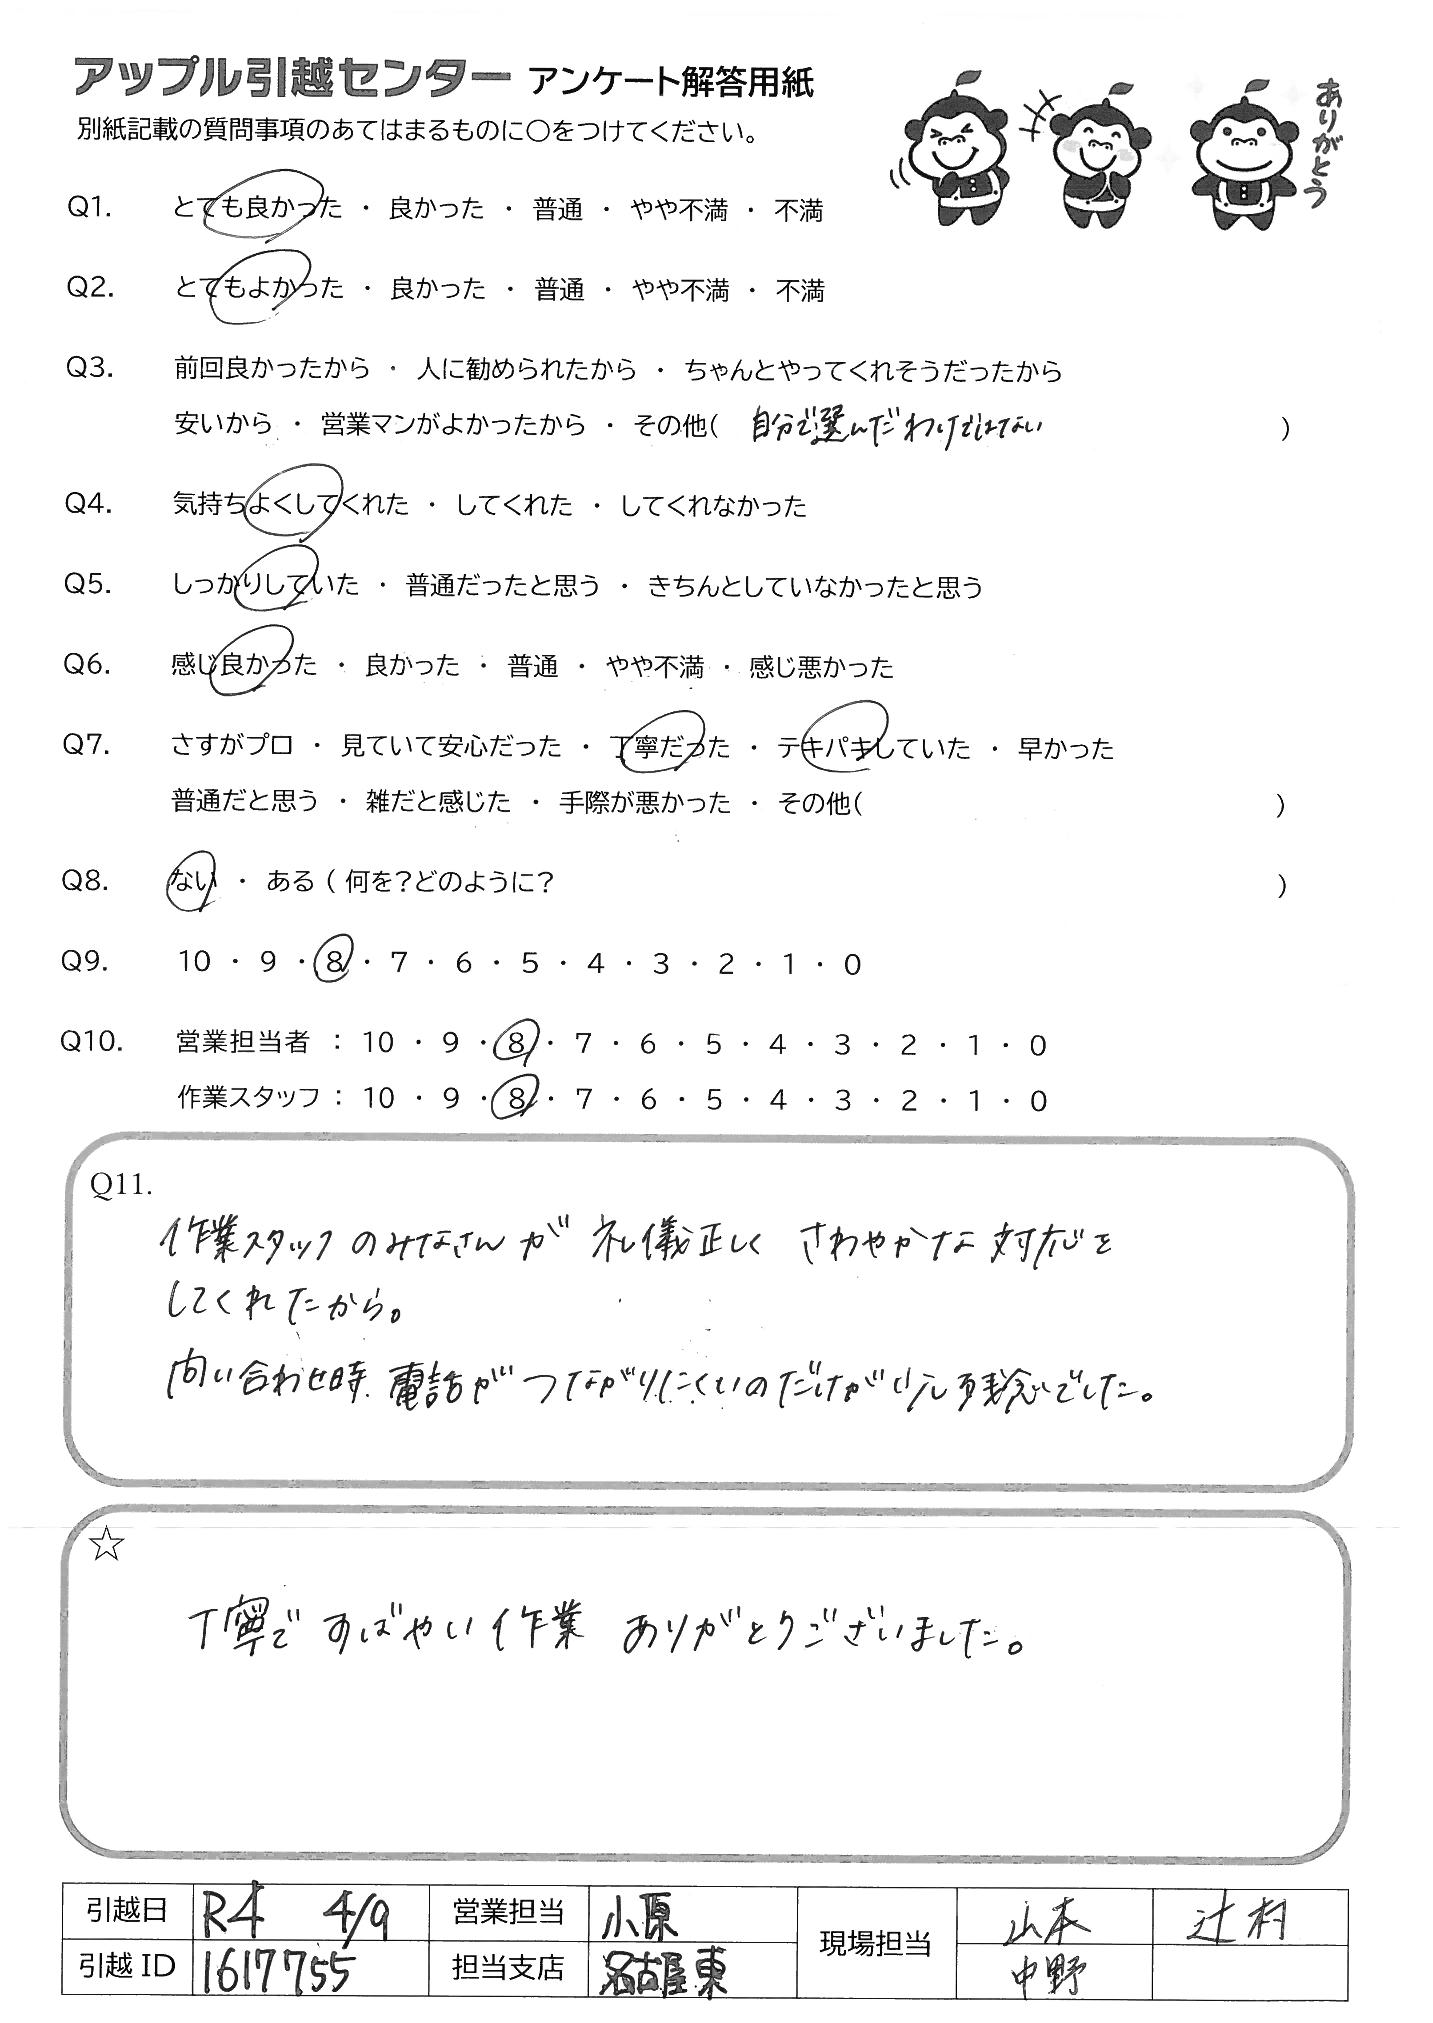 アップル引越センター アンケート解答用紙
別紙記載の質問事項のあてはまるものに○をつけてください。
ありがとう
Q1. とても良かった ・ 良かった ・ 普通 ・ やや不満 ・ 不満
Q2. とてもよかった ・ 良かった ・ 普通 ・ やや不満 ・ 不満
Q3. 前回良かったから ・ 人に勧められたから ・ ちゃんとやってくれそうだったから
安いから ・ 営業マンがよかったから ・ その他( 自分で選んだわけではない )
Q4. 気持ちよくしてくれた ・ してくれた ・ してくれなかった
Q5. しっかりしていた ・ 普通だったと思う ・ きちんとしていなかったと思う
Q6. 感じ良かった ・ 良かった ・ 普通 ・ やや不満 ・ 感じ悪かった
Q7. さすがプロ ・ 見ていて安心だった ・ 丁寧だった ・ テキパキしていた ・ 早かった
普通だと思う ・ 雑だと感じた ・ 手際が悪かった ・ その他( )
Q8. ない ・ ある ( 何を?どのように? )
Q9. 10 ・ 9 ・ 8 ・ 7 ・ 6 ・ 5 ・ 4 ・ 3 ・ 2 ・ 1 ・ 0
Q10. 営業担当者 : 10 ・ 9 ・ 8 ・ 7 ・ 6 ・ 5 ・ 4 ・ 3 ・ 2 ・ 1 ・ 0
作業スタッフ : 10 ・ 9 ・ 8 ・ 7 ・ 6 ・ 5 ・ 4 ・ 3 ・ 2 ・ 1 ・ 0
Q11.
作業スタッフのみなさんが 礼儀正しく さわやかな対応を
してくれたから。
問い合わせ時、電話がつながりにくいのだけが少し残念でした。
☆
丁寧ですばやい作業 ありがとうございました。
引越日 R4 4/9 営業担当 小原 現場担当 山本 辻村
引越ID 1617755 担当支店 名古屋東 中野